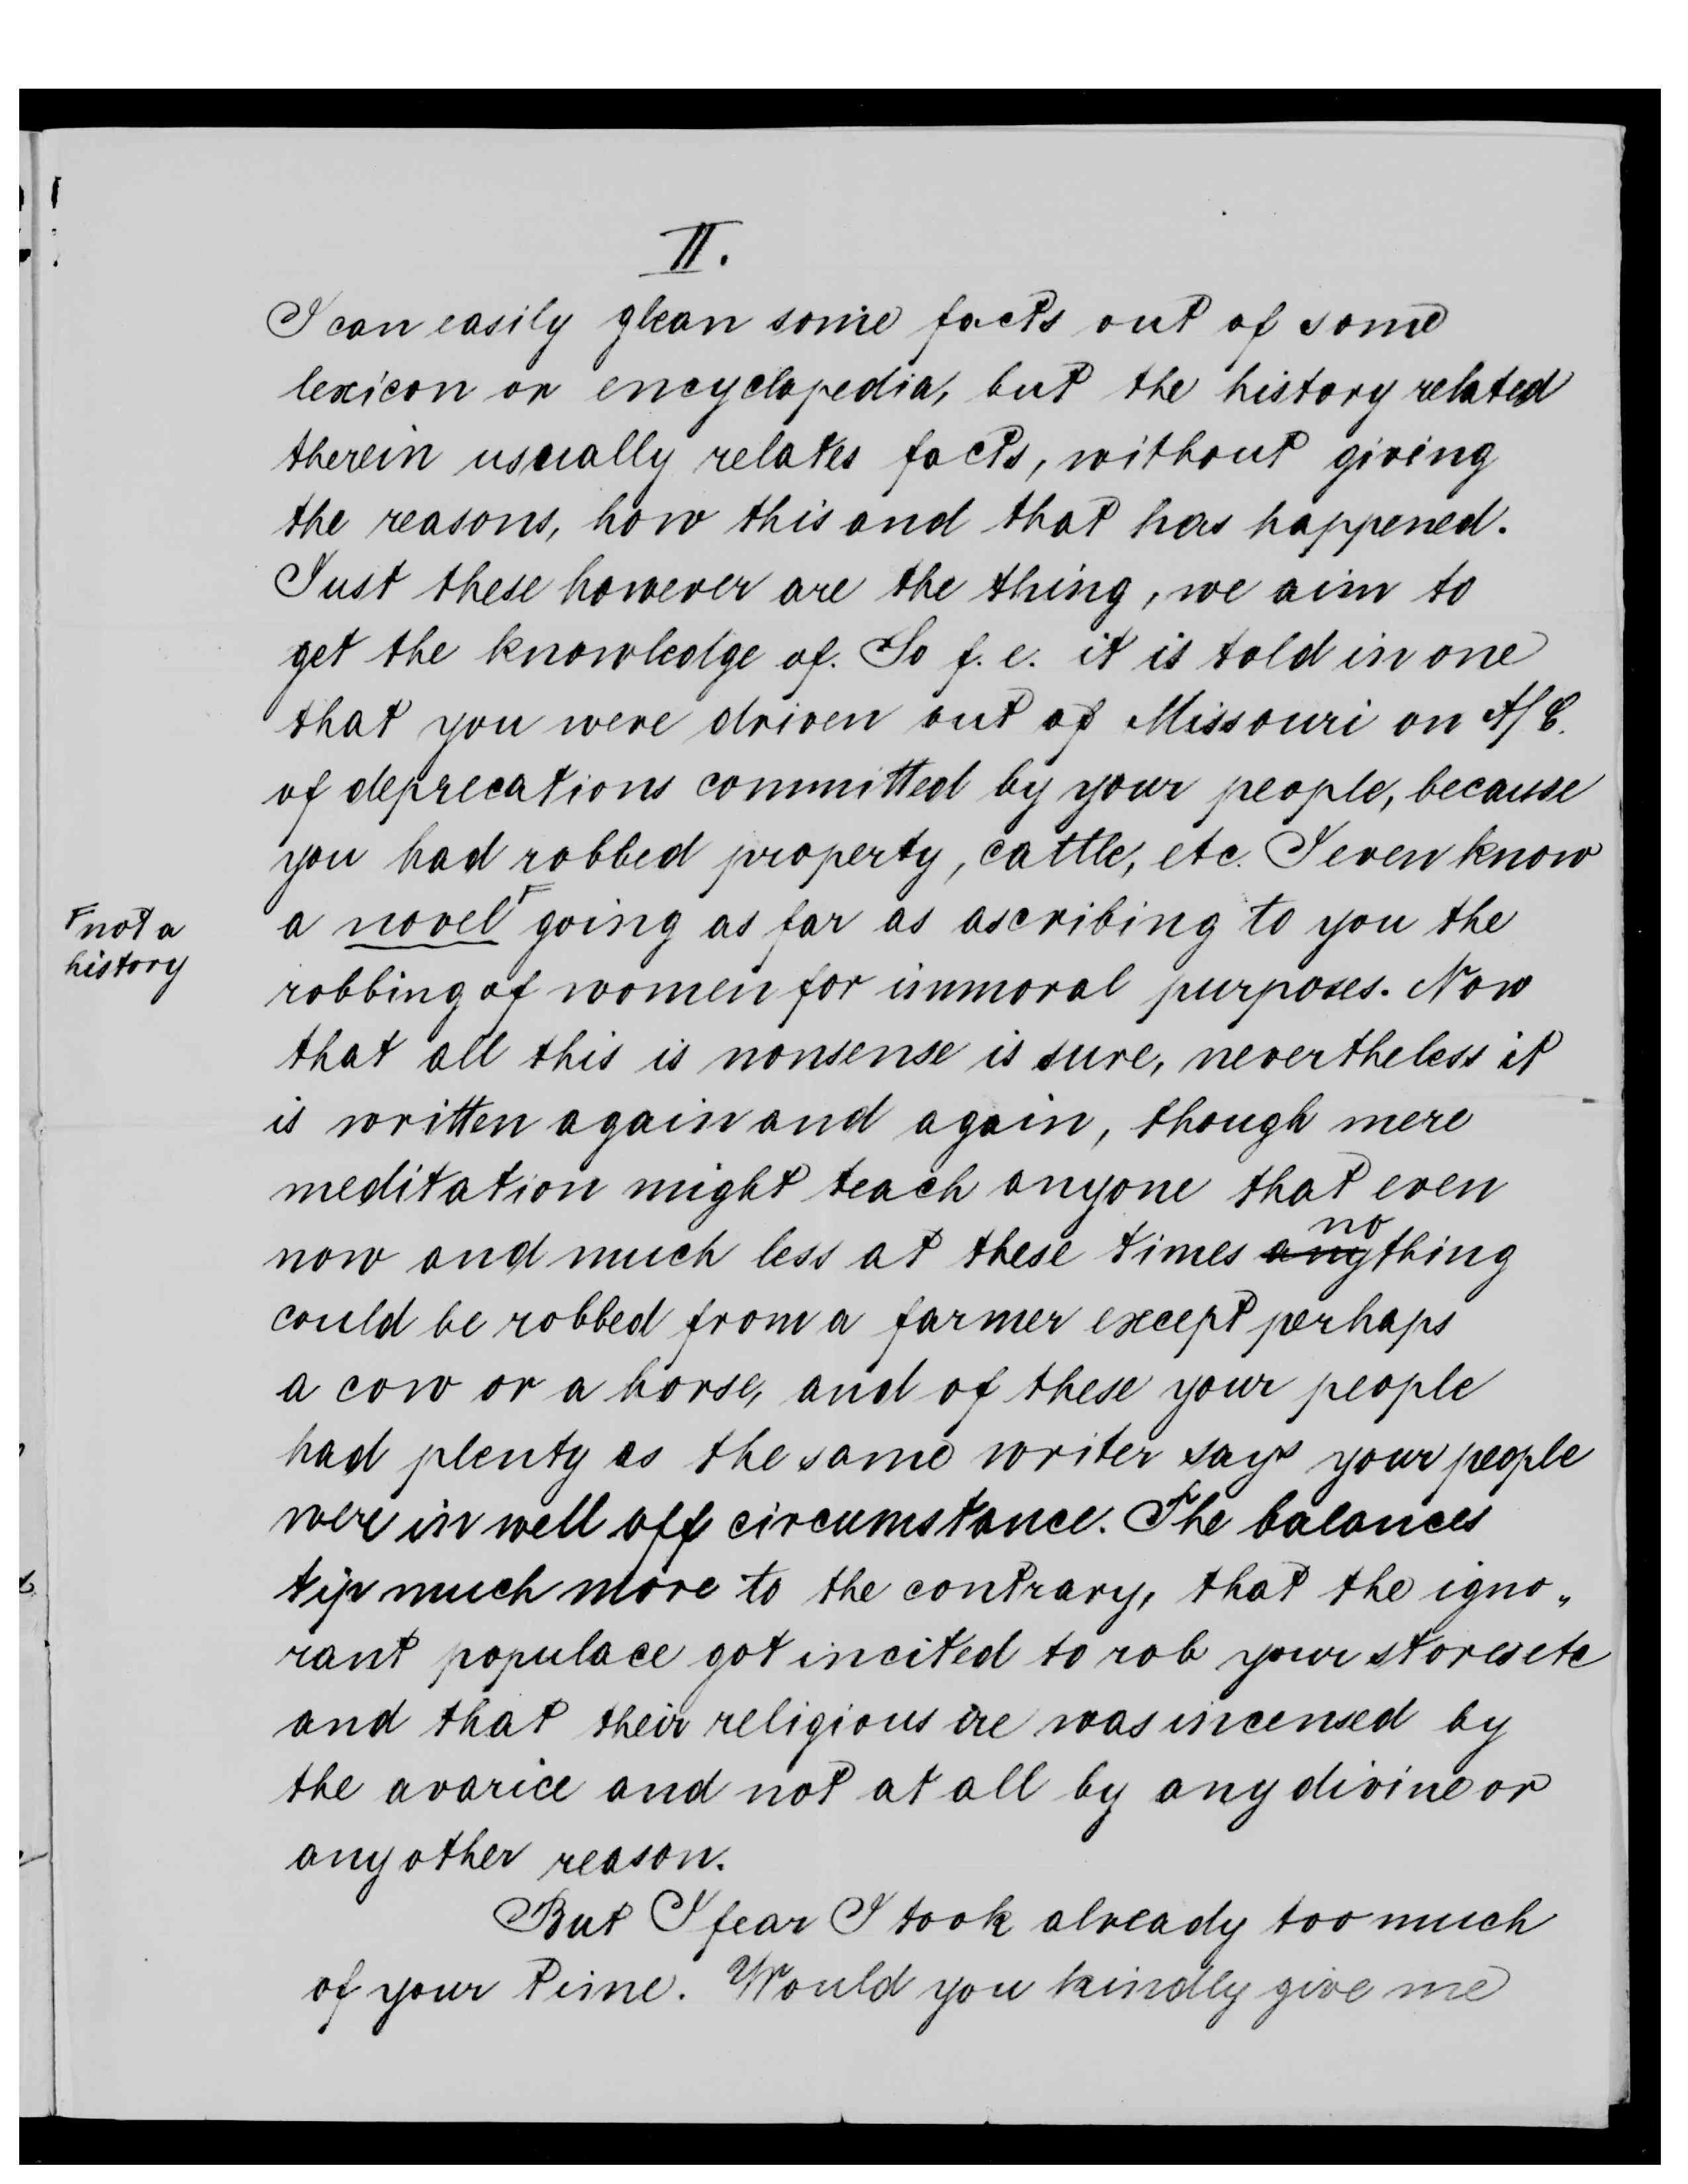 II.
I can easily glean some facts out of some
lexicon or encyclopedia, but the history related
therein usually relates facts, without giving
the reasons, how this and that has happened.
Just these however are the thing, we aim to
get the knowledge of. So f. e. it is told in one
that you were driven out of Missouri on A/C.
of deprecations committed by your people, because
you had robbed property, cattle, etc. I even know
a novel F going as far as ascribing to you the
F not a
history
robbing of women for immoral purposes. Now
that all this is nonsense is sure, nevertheless it
is written again and again, though mere
meditation might teach anyone that even
no
now and much less at these times anything
could be robbed from a farmer except perhaps
a cow or a horse, and of these your people
had plenty as the same writer says your people
were in well off circumstance. The balances
tip much more to the contrary, that the igno„
rant populace got incited to rob your stores etc
and that their religious ire was incensed by
the avarice and not at all by any divine or
any other reason.
But I fear I took already too much
of your time. Would you kindly give me